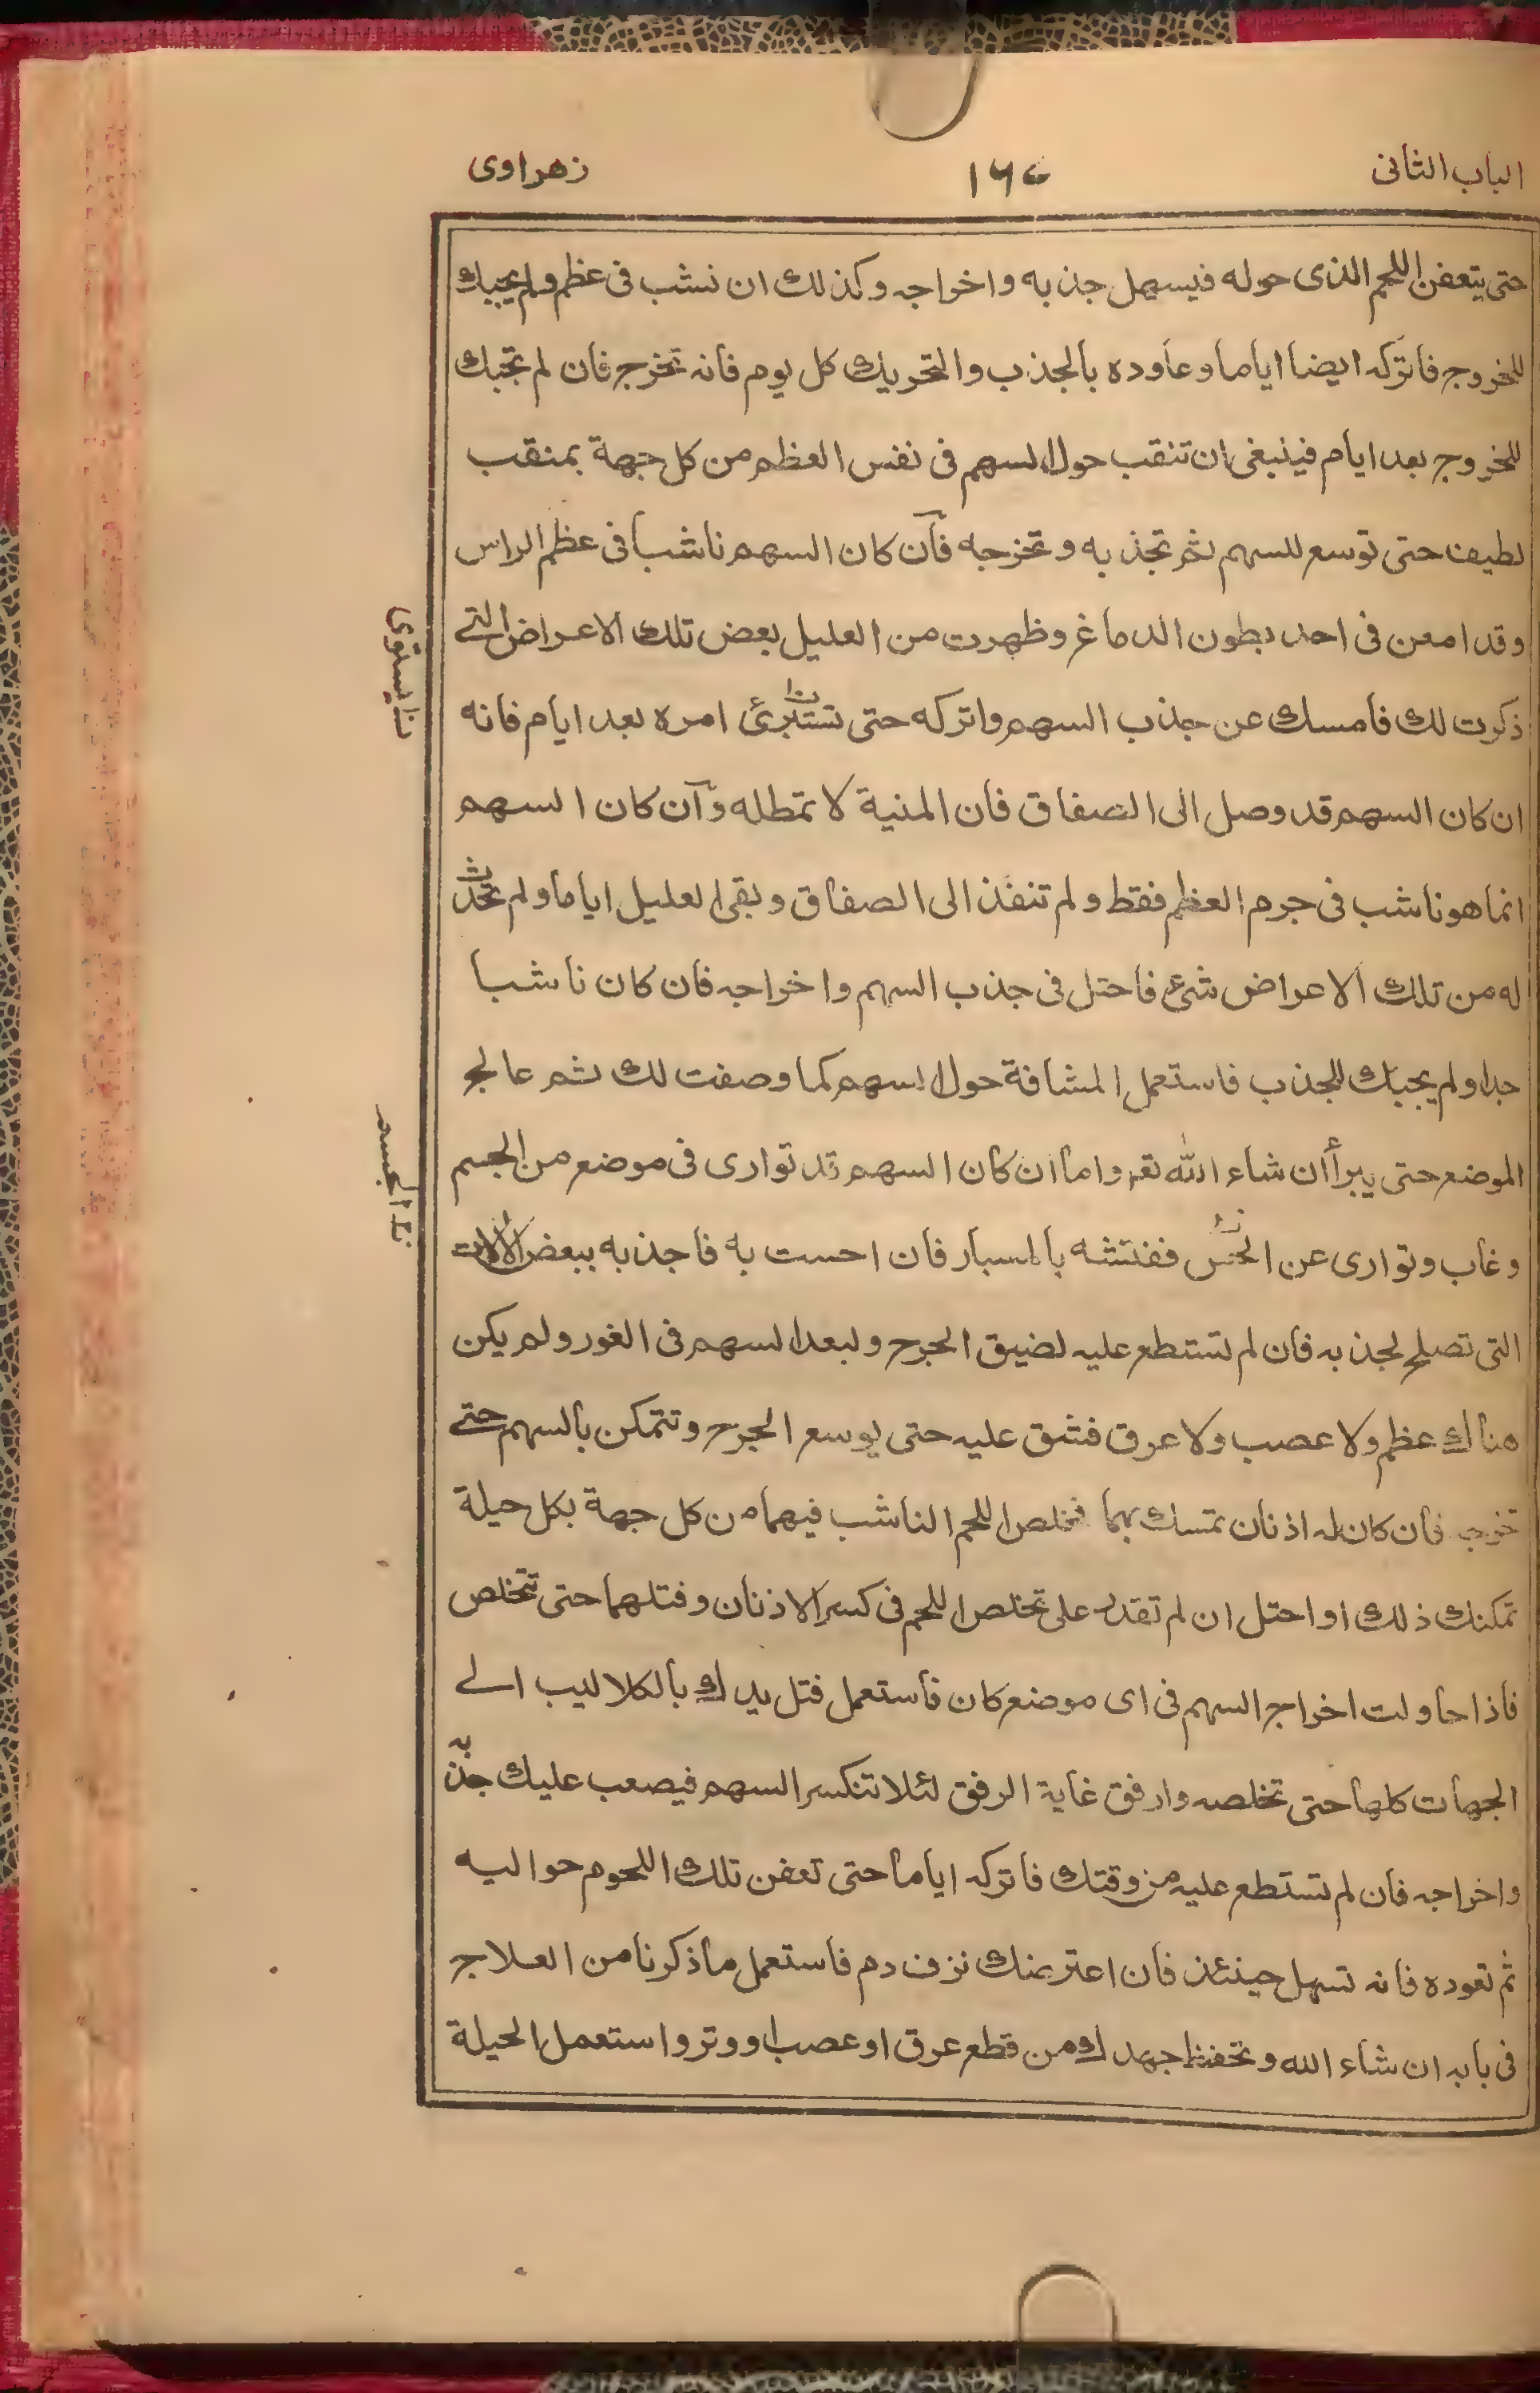 الباب الثانى
زهراوى
حتى يتعفن اللحم الذى حوله فيسهل جذبه واخراجه وكذلك ان نشب فى عظم ولم يجبك
للخروج فاتركه ايضا اياما وعاوده بالجذب والتحريك كل يوم فانه تخرج فان لم تجبك
للخروج بعد ايام فينبغى ان تنقب حول السهم فى نفس العظم من كل جهة بمنقب
لطيف حتى توسع للسهم ثم تجذبه وتخرجه فآن كان السهم ناشبا فى عظم الراس
وقد امعن فى احد بطون الدماغ وظهرت من العليل بعض تلك الاعراض التے
ذكرت لك فامسك عن جذب السهم واتركه حتى تستبرئ امره بعد ايام فانه
ان كان السهم قد وصل الى الصفاق فان المنية لا تمطله وآن كان السهم
انما هو ناشب فى جرم العظم فقط ولم تنفذ الى الصفاق وبقى العليل اياما ولم تحدث
له من تلك الاعراض شىء فاحتل فى جذب السهم واخراجه فان كان ناشبا
جدا ولم يجبك للجذب فاستعمل المشافة حول السهم كما وصفت لك ثم عالج
الموضع حتى يبرأ ان شاء الله تعم واما ان كان السهم قد توارى فى موضع من الجسم
وغاب وتوارى عن الحس ففتشه بالمسبار فان احست به فاجذبه ببعض الالات
التى تصلح لجذبه فان لم تستطع عليه لضيق الجرح ولبعد السهم فى الغور ولم يكن
هناك عظم ولا عصب ولا عرق فشق عليه حتى يوسع الجرح وتتمكن بالسهم حتے
تخرجه فان كان له اذنان تمسك بهما فخلص اللحم الناشب فيهما من كل جهة بكل حيلة
تمكنك ذلك او احتل ان لم تقدر على تخلص اللحم فى كسر الاذنان وفتلهما حتى تتخلص
فاذا حاولت اخراج السهم فى اى موضع كان فاستعمل فتل يدك بالكلاليب الے
الجهات كلها حتى تخلصه وارفق غاية الرفق لئلا تنكسر السهم فيصعب عليك جذبه
واخراجه فان لم تستطع عليه من وقتك فاتركه اياما حتى تعفن تلك اللحوم حواليه
ثم تعوده فانه تسهل حينئذ فان اعترضك نزف دم فاستعمل ما ذكرنا من العلاج
فى بابه ان شاء الله وتحفظ جهدك من قطع عرق او عصب او وتر واستعمل الحيلة